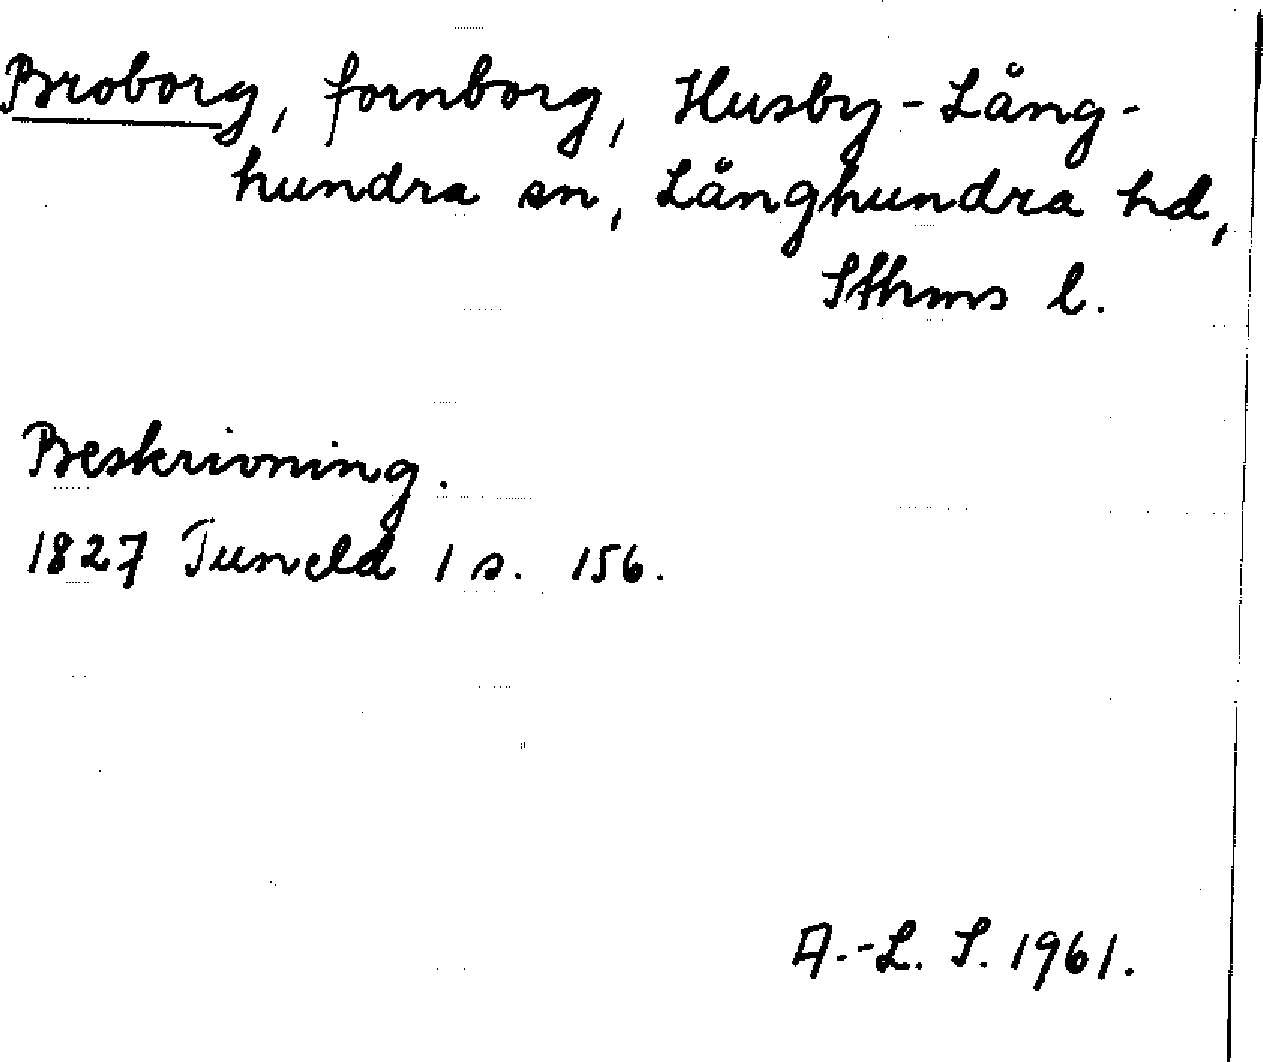 Broborg, fornborg, Husby-Lång-
hundra sn, Långhundra hd,
Sthms l.
Beskrivning.
1827 Tuneld 1 s. 156.
A.-L. S. 1961.